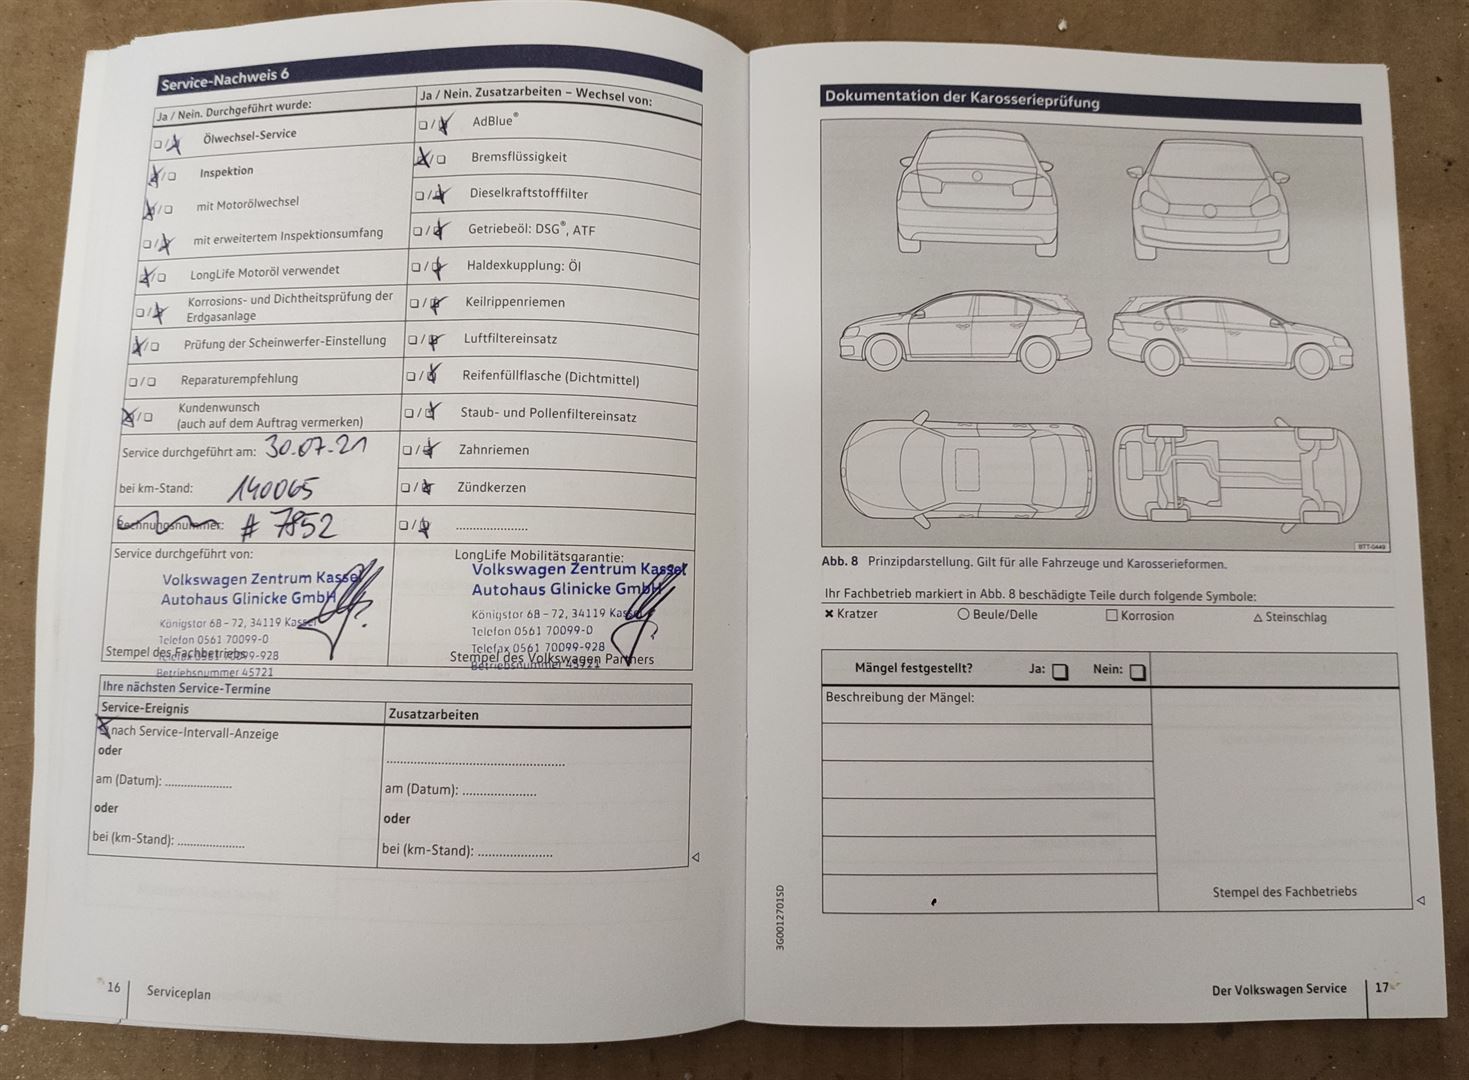 Service-Nachweis 6
Ja / Nein. Durchgeführt wurde:
Ölwechsel-Service
Inspektion
mit Motorölwechsel
mit erweitertem Inspektionsumfang
LongLife Motoröl verwendet
Korrosions- und Dichtheitsprüfung der
Erdgasanlage
Prüfung der Scheinwerfer-Einstellung
Reparaturempfehlung
Kundenwunsch
(auch auf dem Auftrag vermerken)
Service durchgeführt am: 30.07.21
bei km-Stand: 140065
Rechnungsnummer: # 7852
Ja / Nein. Zusatzarbeiten – Wechsel von:
AdBlue®
Bremsflüssigkeit
Dieselkraftstofffilter
Getriebeöl: DSG®, ATF
Haldexkupplung: Öl
Keilrippenriemen
Luftfiltereinsatz
Reifenfüllflasche (Dichtmittel)
Staub- und Pollenfiltereinsatz
Zahnriemen
Zündkerzen
Service durchgeführt von:
Volkswagen Zentrum Kassel
Autohaus Glinicke GmbH
Königstor 68 – 72, 34119 Kassel
Telefon 0561 70099-0
Telefax 0561 70099-928
Betriebsnummer 45721
Stempel des Fachbetriebs
LongLife Mobilitätsgarantie:
Volkswagen Zentrum Kassel
Autohaus Glinicke GmbH
Königstor 68 – 72, 34119 Kassel
Telefon 0561 70099-0
Telefax 0561 70099-928
Betriebsnummer 45721
Stempel des Volkswagen Partners
Ihre nächsten Service-Termine
Service-Ereignis
nach Service-Intervall-Anzeige
oder
am (Datum): ....................
oder
bei (km-Stand): ....................
Zusatzarbeiten
am (Datum): ....................
oder
bei (km-Stand): ....................
16 Serviceplan
Dokumentation der Karosserieprüfung
BTT-0449
Abb. 8 Prinzipdarstellung. Gilt für alle Fahrzeuge und Karosserieformen.
Ihr Fachbetrieb markiert in Abb. 8 beschädigte Teile durch folgende Symbole:
✖ Kratzer ○ Beule/Delle □ Korrosion △ Steinschlag
Mängel festgestellt? Ja: ❏ Nein: ❏
Beschreibung der Mängel:
Stempel des Fachbetriebs
3G0012701SD
Der Volkswagen Service 17